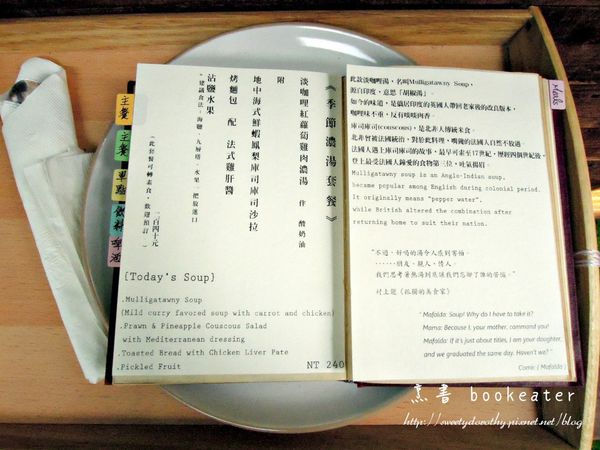 主餐
主餐
單點
飲料
啤酒
《季節濃湯套餐》
淡咖哩紅蘿蔔雞肉濃湯 伴 酸奶油
附
地中海式鮮蝦鳳梨庫司庫司沙拉
烤麵包 配 法式雞肝醬
沾鹽水果
（此套餐可轉素食，歡迎預訂）
二百四十元
{Today's Soup}
.Mulligatawny Soup
(Mild curry favored soup with carrot and chicken)
.Prawn & Pineapple Couscous Salad
with Mediterranean dressing
.Toasted Bread with Chicken Liver Pate
.Pickled Fruit
NT 240
Meals
此款淡咖哩湯，名叫Mulligatawny Soup，
源自印度，意思「胡椒湯」。
如今的味道，是僑居印度的英國人帶回老家後的改良版本，
咖哩味不重，反有啖啖肉香。
庫司庫司(couscous)，是北非人傳統米食。
北非曾被法國統治，對於此料理，嘴饞的法國人自然不放過。
法國人遇上庫司庫司的故事，最早可走至17世紀，歷經四個世紀後，
登上最受法國人鍾愛的食物第三位，吐氣揚眉。
Mulligatawny soup is an Anglo-Indian soup,
became popular among English during colonial period.
It originally means "pepper water".
while British altered the combination after
returning home to suit their nation.
"不過，好喝的湯令人感到害怕。
……朋友、親人、情人。
我們思考著熱湯到底讓我們忘卻了誰的苦惱。"
村上龍《孤獨的美食家》
" Mafalda: Soup! Why do I have to take it?
Mama: Because I, your mother, command you!
Mafalda: If it's just about titles, I am your daughter,
and we graduated the same day. Haven't we? "
Comic [ Mafalda ]
烹書 bookeater
http://sweetydorothy.pixnet.net/blog